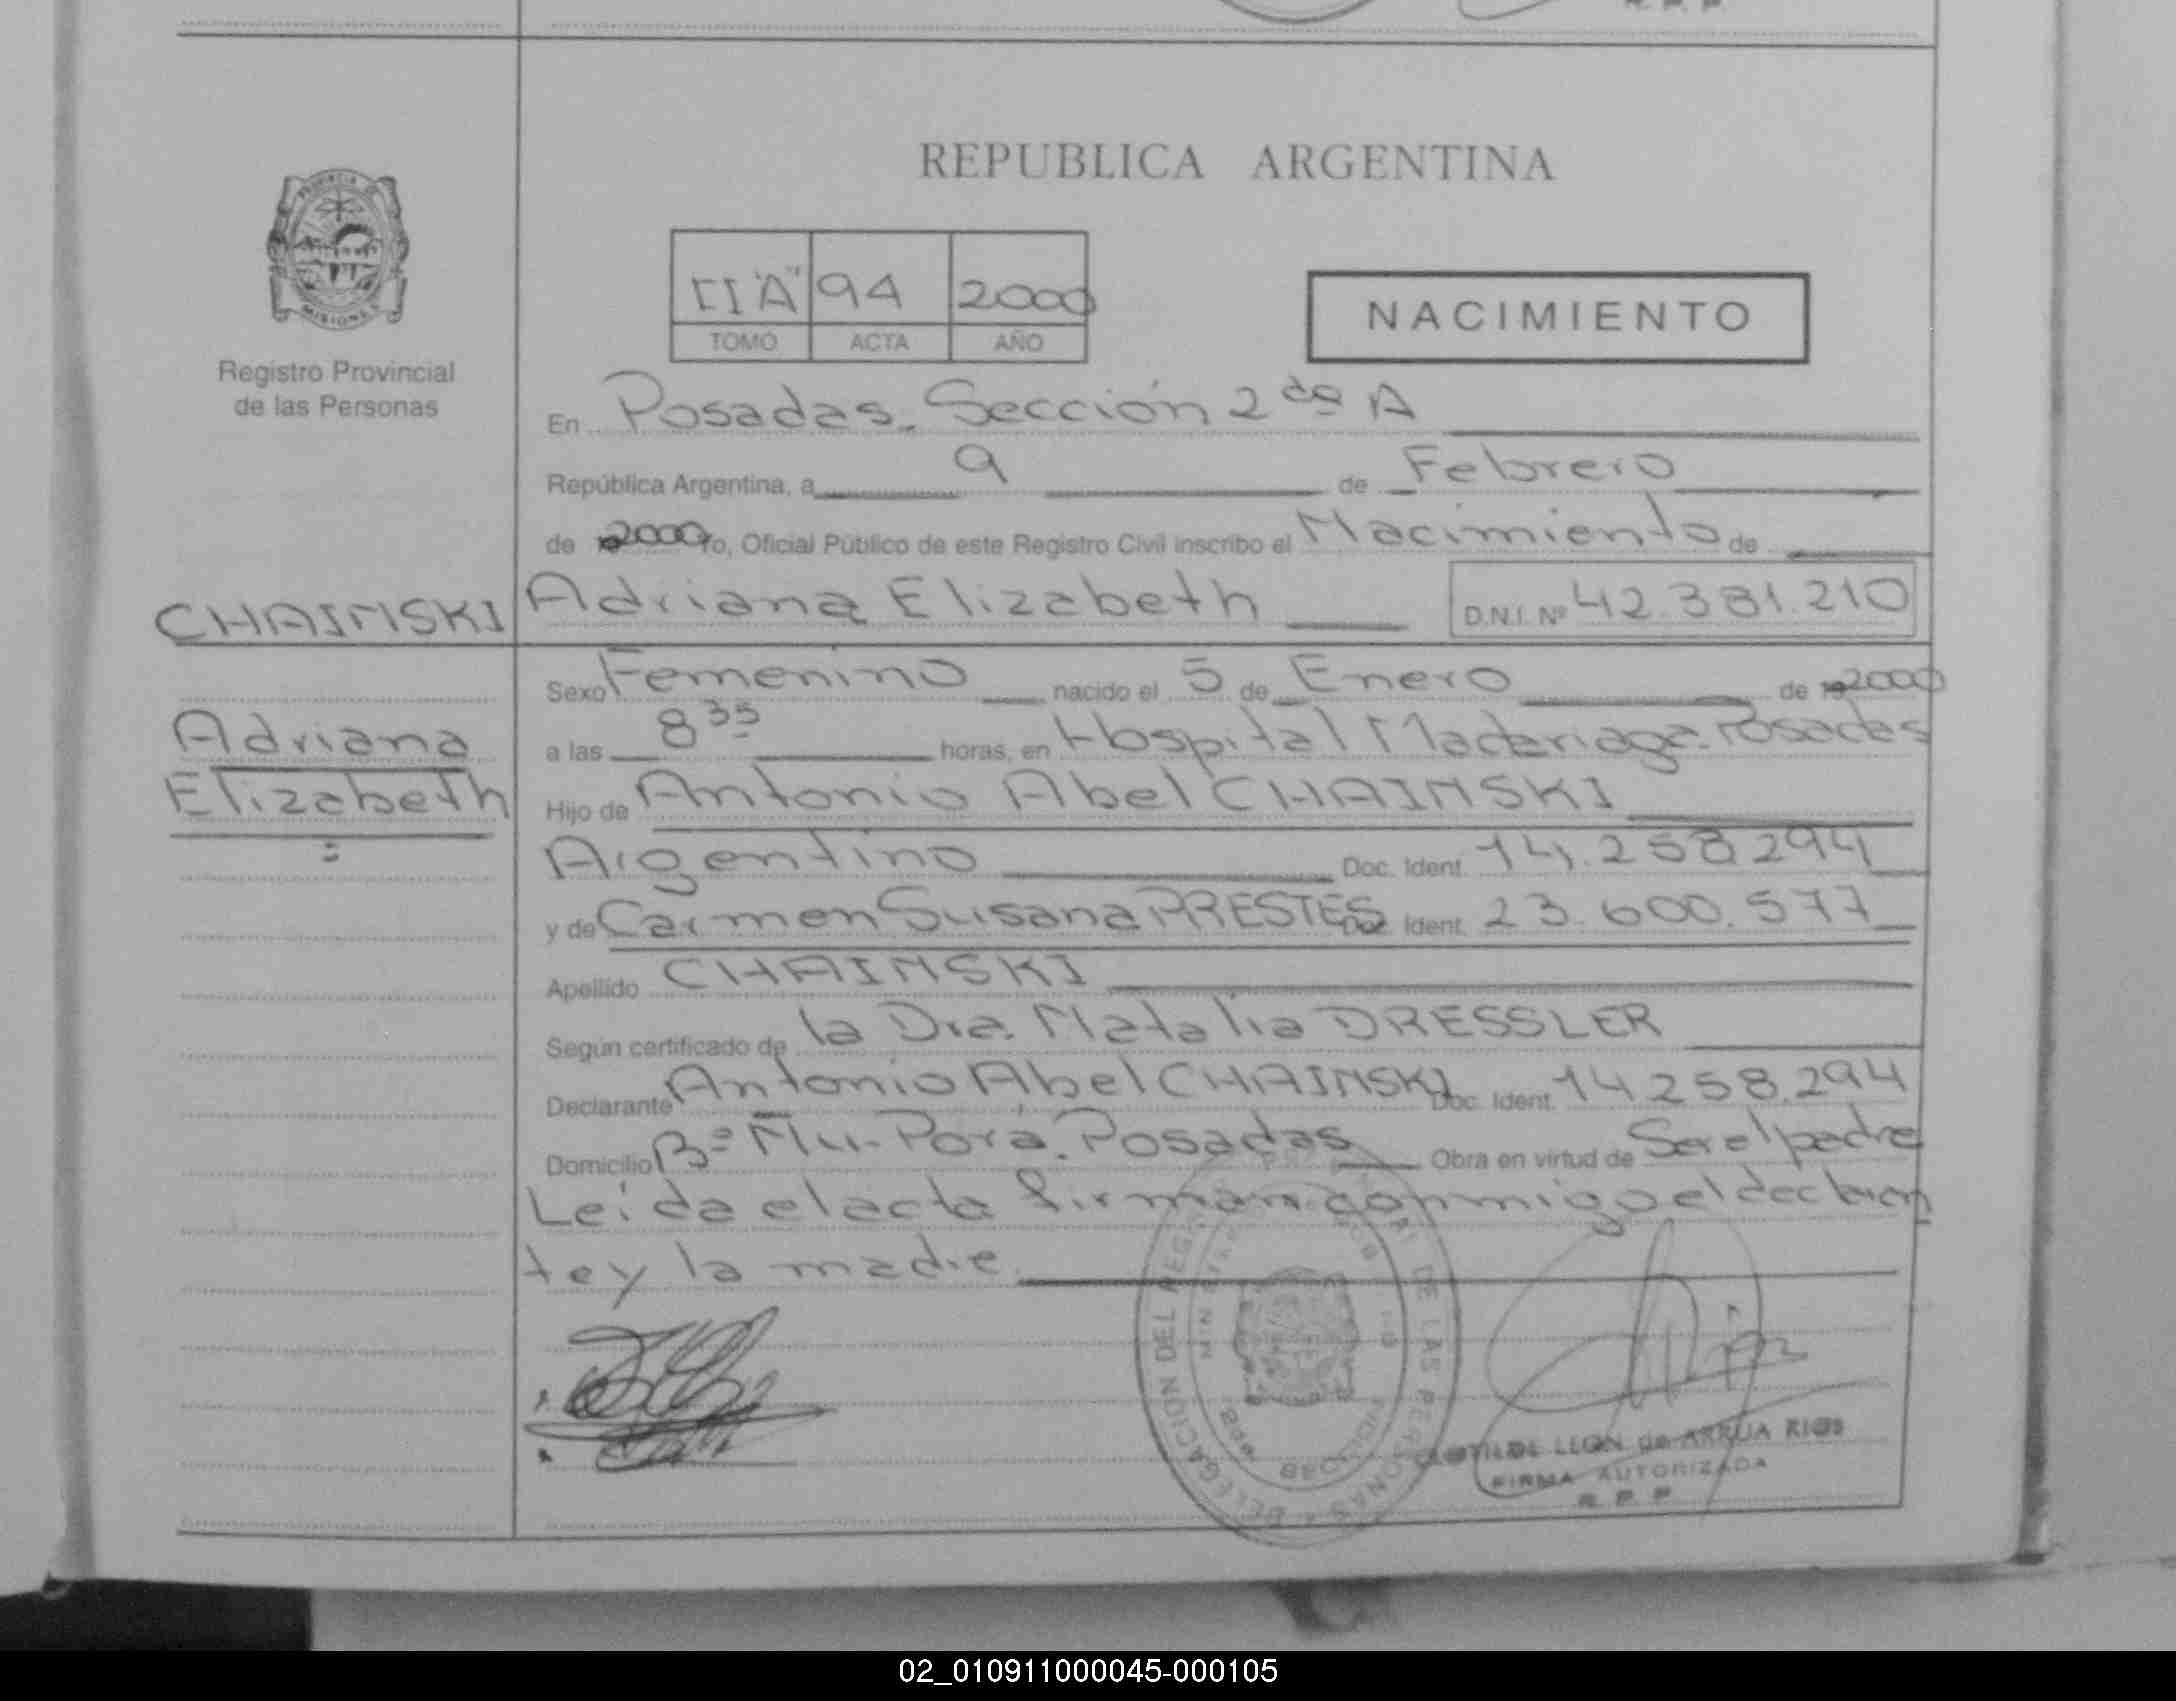 R. P. P
REPUBLICA ARGENTINA
PROVINCIA DE
MISIONES
Registro Provincial
de las Personas
II "A" 94 2000
TOMO ACTA AÑO
NACIMIENTO
En Posadas. Sección 2da A
República Argentina, a 9 de Febrero
de 2000 Yo, Oficial Público de este Registro Civil inscribo el Nacimiento de
CHAINSKI Adriana Elizabeth D.N.I. Nº 42.381.210
Sexo Femenino nacido el 5 de Enero de 2000
Adriana
Elizabeth
a las 8 35 horas, en Hospital Madariaga. Posadas
Hijo de Antonio Abel CHAINSKI
Argentino Doc. Ident. 14.258.294
y de Carmen Susana PRESTES Doc. Ident. 23.600.577
Apellido CHAINSKI
Según certificado de la Dra. Natalia DRESSLER
Declarante Antonio Abel CHAINSKI Doc. Ident. 14.258.294
Domicilio Bº Ñu-Porá. Posadas Obra en virtud de Ser el padre
Leída el acta firman conmigo el declaran
te y la madre
DELEGACION DEL REG DE LAS PERSONAS
CLOTILDE LEON de ARRUA RIOS
FIRMA AUTORIZADA
R. P. P
02_010911000045-000105